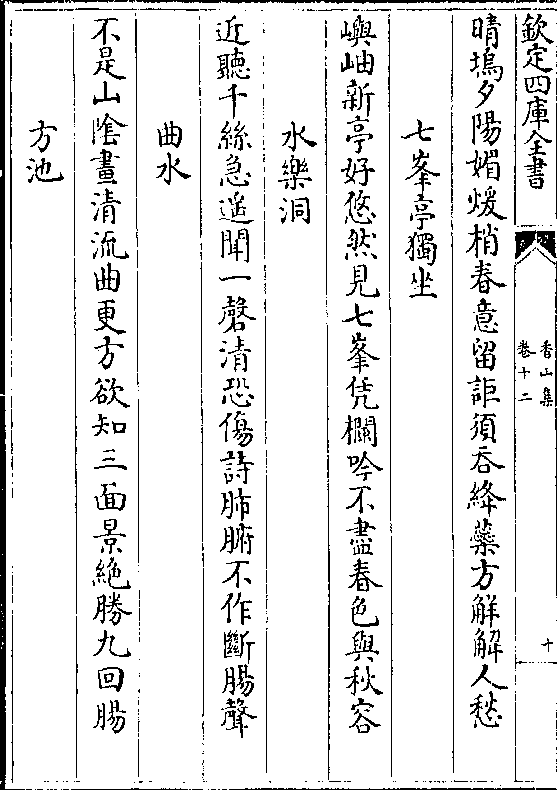 欽定四庫全書
香山集
卷十二
十
晴塢夕陽媚煖梢春意留詎須吞絳藥方觧解人愁
七峯亭獨坐
嶼岫新亭好悠然見七峯凭欄吟不盡春色與秋容
水樂洞
近聽千絲急遥聞一磬清恐傷詩肺腑不作斷腸聲
曲水
不是山隂晝清流曲更方欲知三面景絶勝九回腸
方池